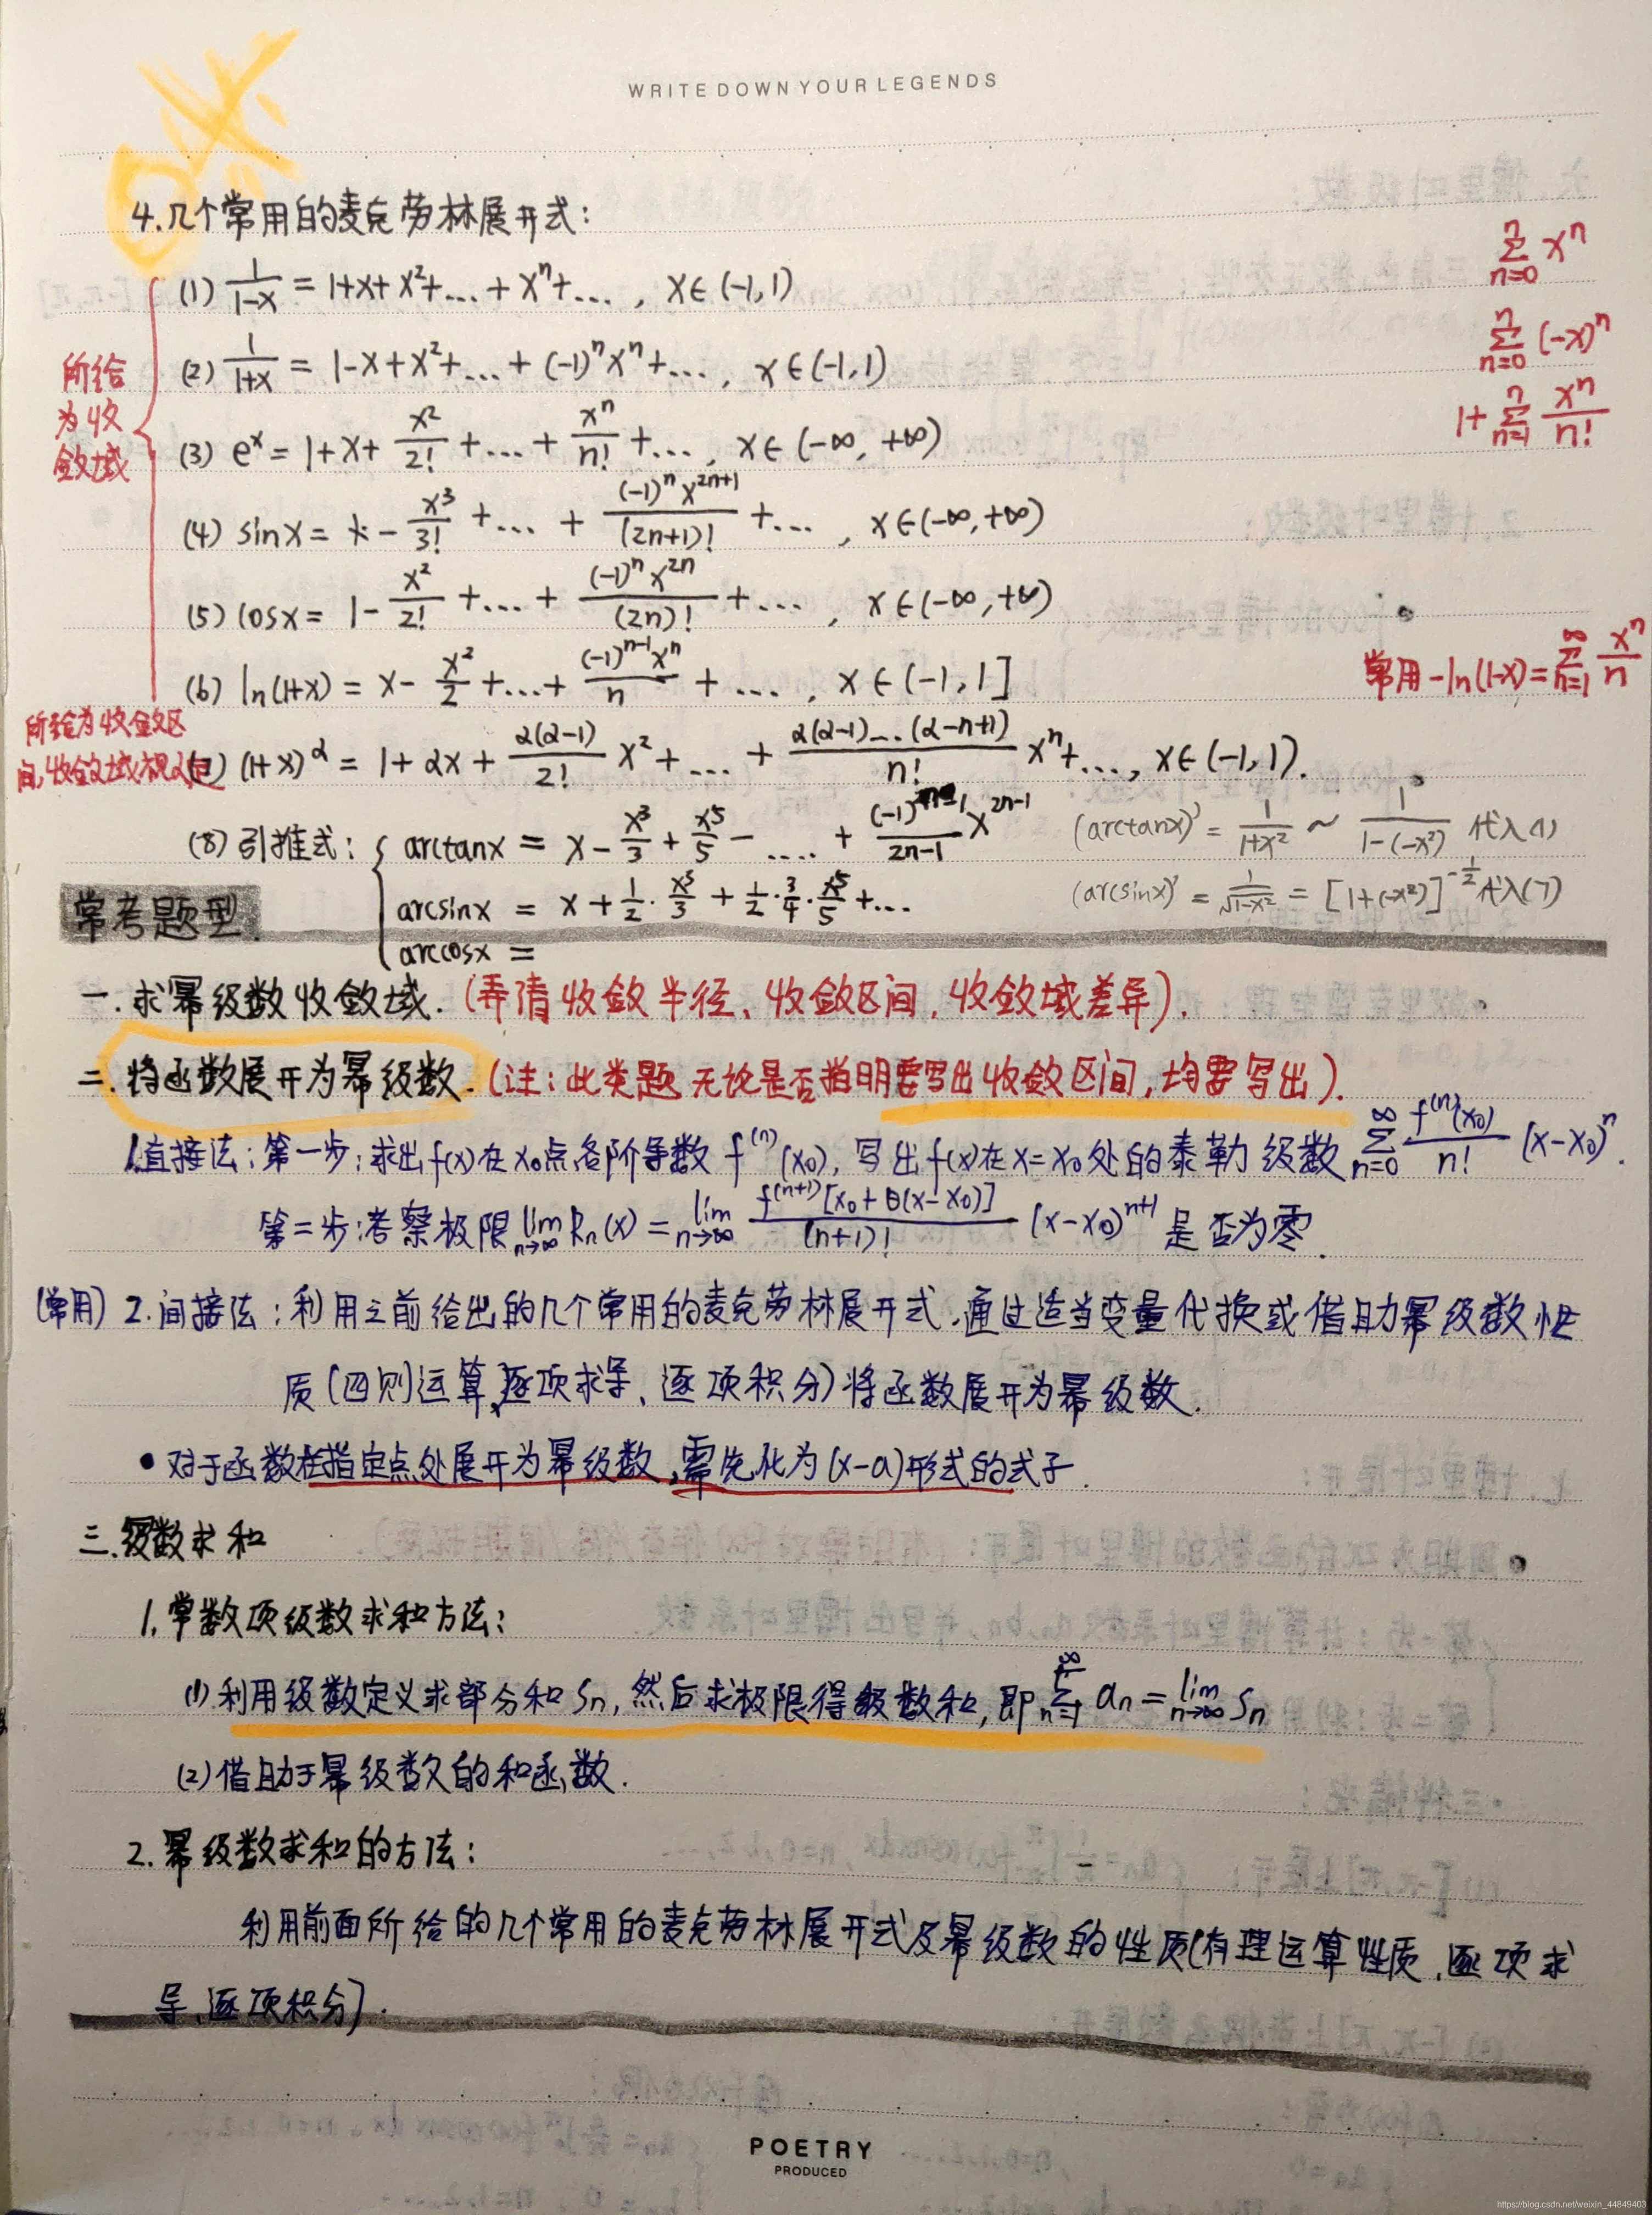 WRITE DOWN YOUR LEGENDS
4.几个常用的麦克劳林展开式:
(1) 1/(1-x) = 1+x+x²+...+xⁿ+... , x∈(-1,1)
∑_{n=0}^{n} xⁿ
(2) 1/(1+x) = 1-x+x²+...+(-1)ⁿxⁿ+... , x∈(-1,1)
∑_{n=0}^{n} (-x)ⁿ
所给
为收
敛域
(3) eˣ = 1+x+x²/2!+...+xⁿ/n!+... , x∈(-∞,+∞)
1+∑_{n=1}^{n} xⁿ/n!
(4) sinx = x-x³/3!+...+(-1)ⁿx²ⁿ⁺¹/(2n+1)!+... , x∈(-∞,+∞)
(5) cosx = 1-x²/2!+...+(-1)ⁿx²ⁿ/(2n)!+... , x∈(-∞,+∞)
(6) ln(1+x) = x-x²/2+...+(-1)ⁿ⁻¹xⁿ/n+... , x∈(-1,1]
常用-ln(1-x)=∑_{n=1}^{∞} xⁿ/n
所给为收敛区
间,收敛域视α定
(7) (1+x)^α = 1+αx+α(α-1)/2! x²+...+α(α-1)...(α-n+1)/n! xⁿ+..., x∈(-1,1).
(8) 引推式: { arctanx = x-x³/3+x⁵/5-....+(-1)ⁿ⁻¹/(2n-1) x²ⁿ⁻¹
(arctanx)' = 1/(1+x²) ~ 1/(1-(-x²)) 代入(1)
arcsinx = x+1/2·x³/3+1/2·3/4·x⁵/5+...
(arcsinx)' = 1/√(1-x²) = [1+(-x²)]^(-1/2) 代入(7)
arccosx =
常考题型.
一.求幂级数收敛域.(弄清收敛半径、收敛区间,收敛域差异).
二.将函数展开为幂级数.(注:此类题无论是否指明要写出收敛区间,均要写出).
1.直接法:第一步:求出f(x)在x₀点各阶导数f⁽ⁿ⁾(x₀),写出f(x)在x=x₀处的泰勒级数∑_{n=0}^{∞} f⁽ⁿ⁾(x₀)/n! (x-x₀)ⁿ.
第二步:考察极限lim_{n→∞} Rₙ(x) = lim_{n→∞} f⁽ⁿ⁺¹⁾[x₀+θ(x-x₀)]/(n+1)! (x-x₀)ⁿ⁺¹ 是否为零.
(常用) 2.间接法:利用之前给出的几个常用的麦克劳林展开式,通过适当变量代换或借助幂级数性
质(四则运算,逐项求导、逐项积分)将函数展开为幂级数.
•对于函数在指定点处展开为幂级数,需先化为(x-a)形式的式子.
三.级数求和
1.常数项级数求和方法:
(1)利用级数定义求部分和Sₙ,然后求极限得级数和,即∑_{n=1}^{∞} aₙ=lim_{n→∞} Sₙ
(2)借助于幂级数的和函数.
2.幂级数求和的方法:
利用前面所给的几个常用的麦克劳林展开式及幂级数的性质(有理运算性质,逐项求
导、逐项积分).
POETRY
PRODUCED
https://blog.csdn.net/weixin_44849403